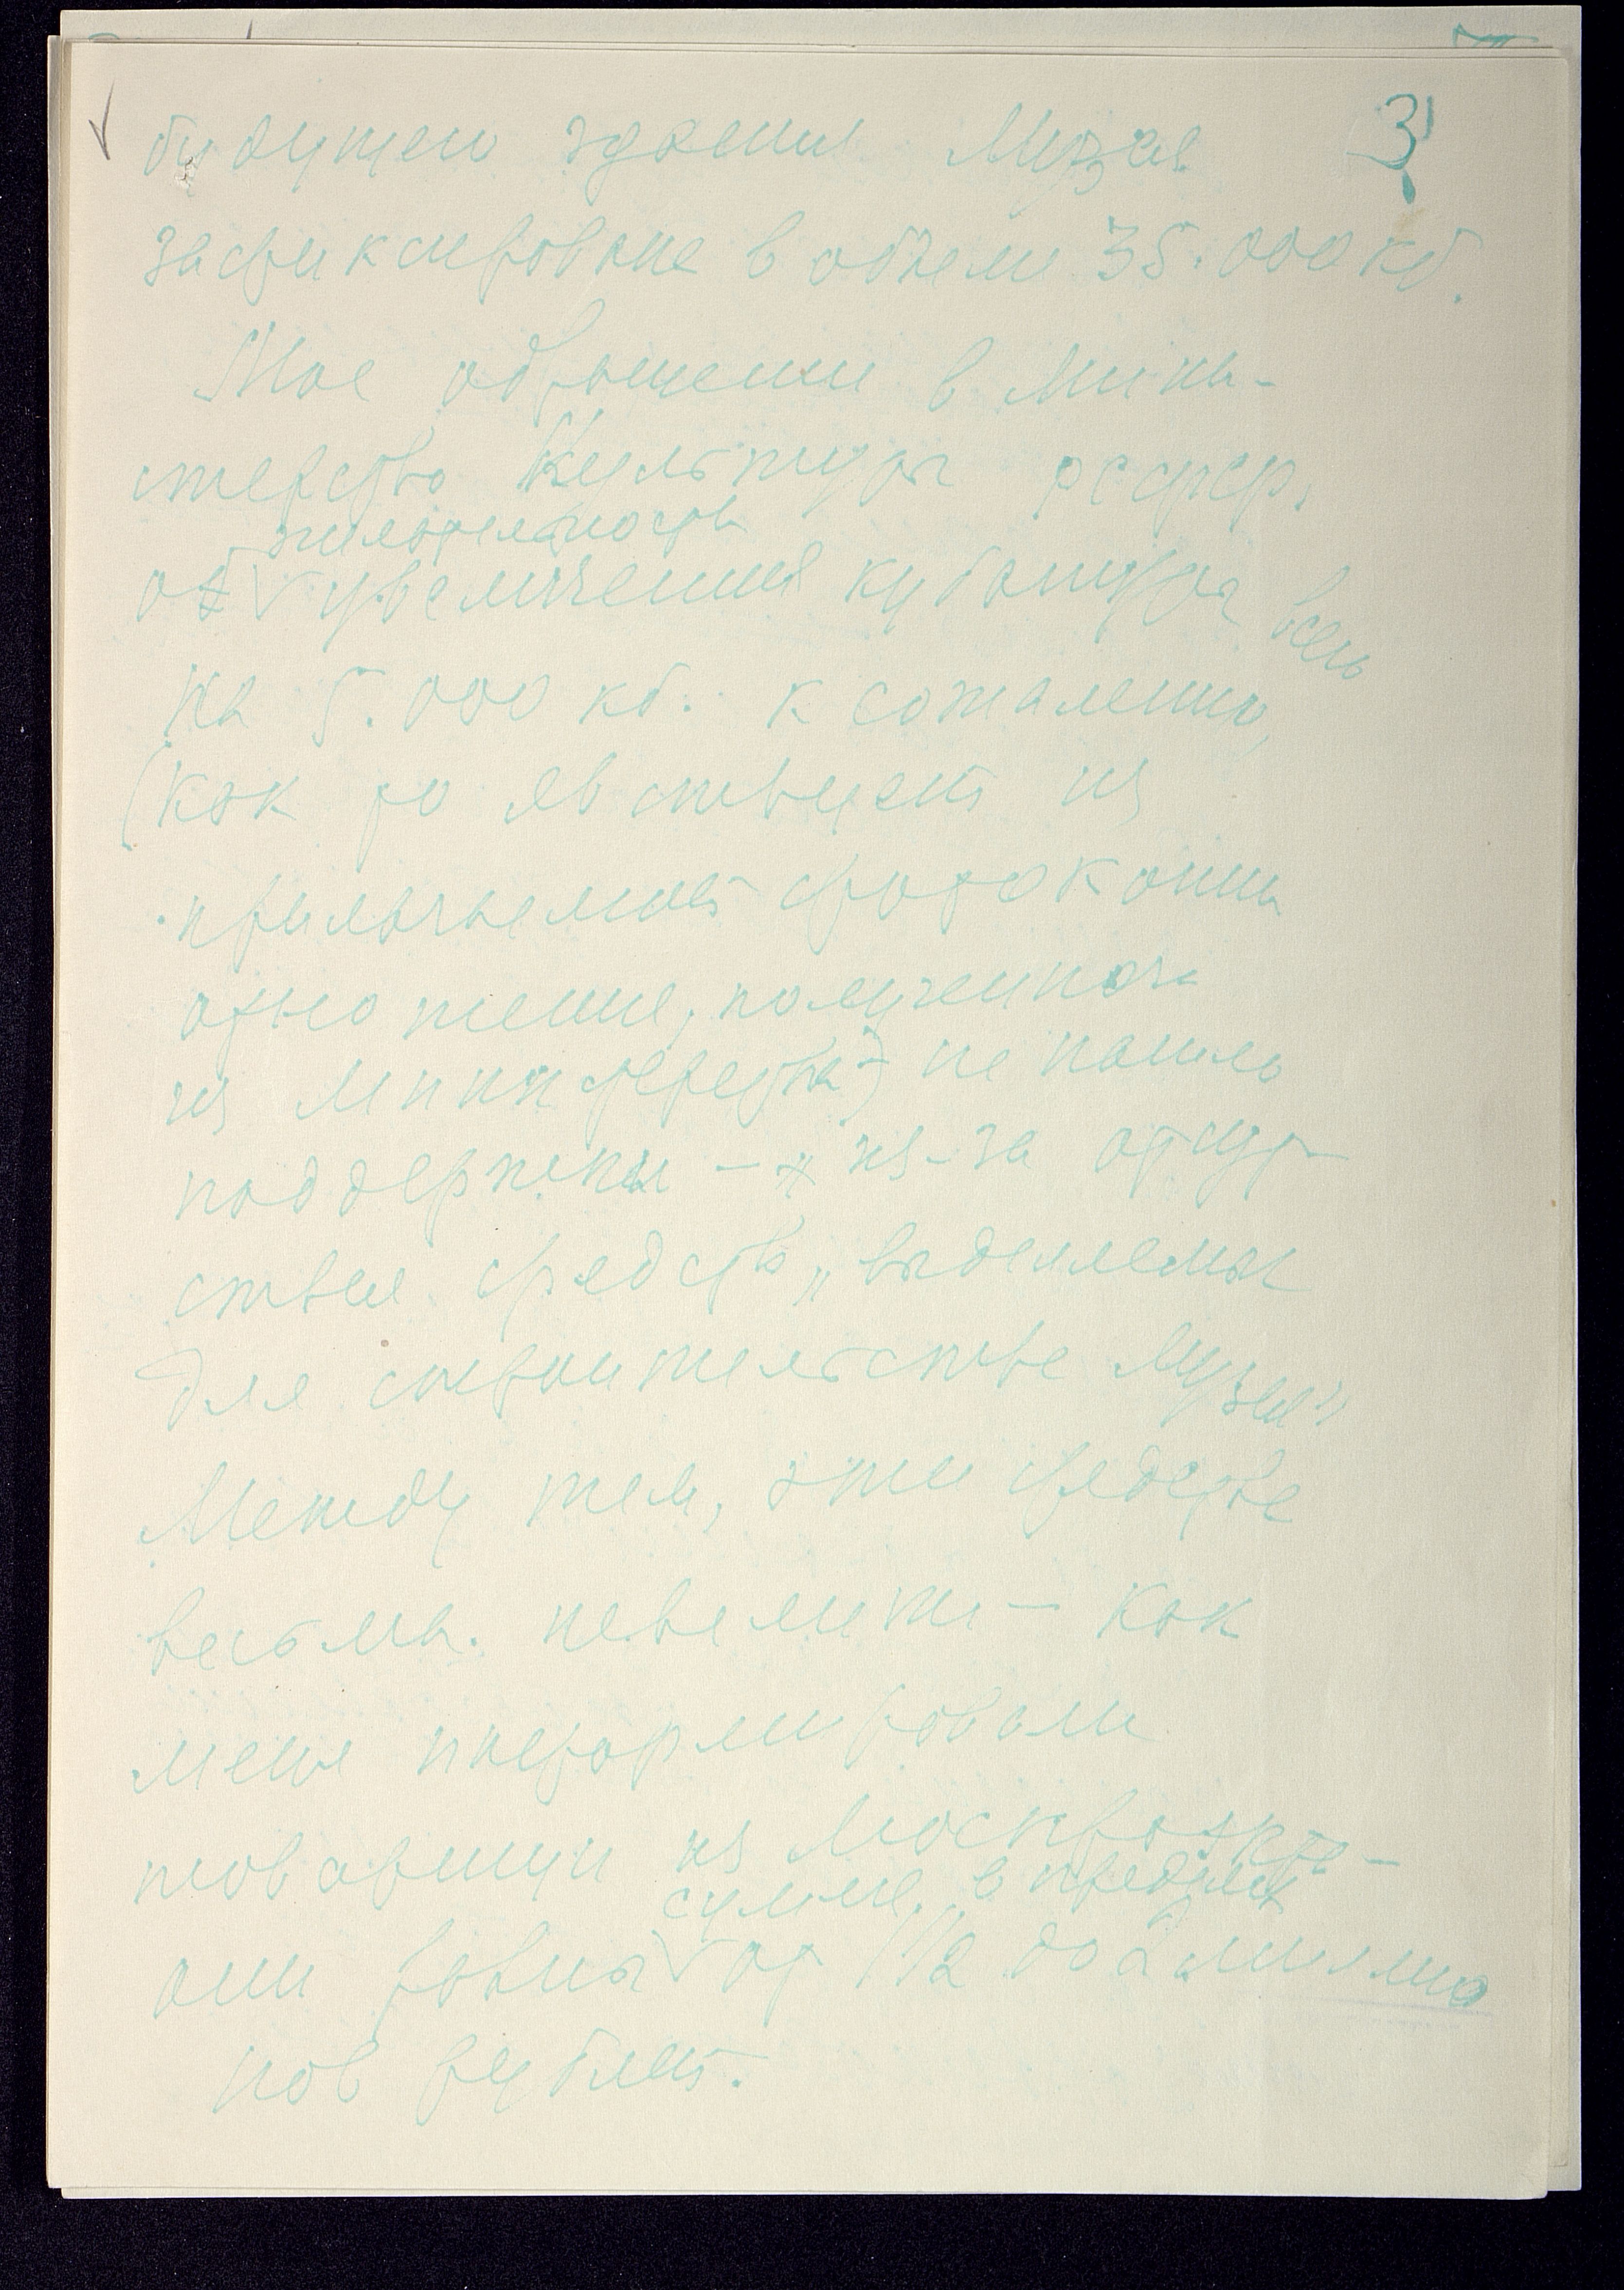 3
будущего здания Музея
зафиксирована в объеме 35.000 кб.
Мое обращение в Мини-
стерство Культуры РСФСР,
желательность
об увеличения кубатуры всего
на 5.000 кб. к сожалению,
(как то явствует из
прилагаемой фотокопии
отношения, полученного
из Министерства) не нашло
поддержки – из-за отсут-
ствия средств, „выделяемых
для строительства Музея"
Между тем, эти средства
весьма невелики – как
меня информировали
товарищи из Моспроекта –
сумме, в пределах
они равны от 1 1/2 до 2 миллио
нов рублей.